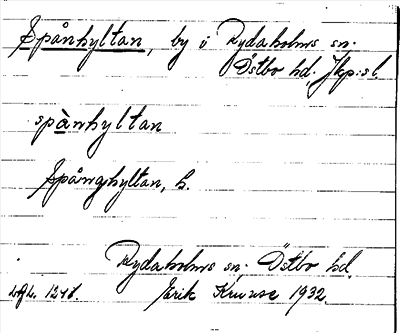 Spånhyltan, by i Rydaholms sn.
Östbo hd, Jkp:s l.
spànhyltan
Spånghyltan, b.
Rydaholms sn. Östbo hd.
Erik Kruuse 1932.